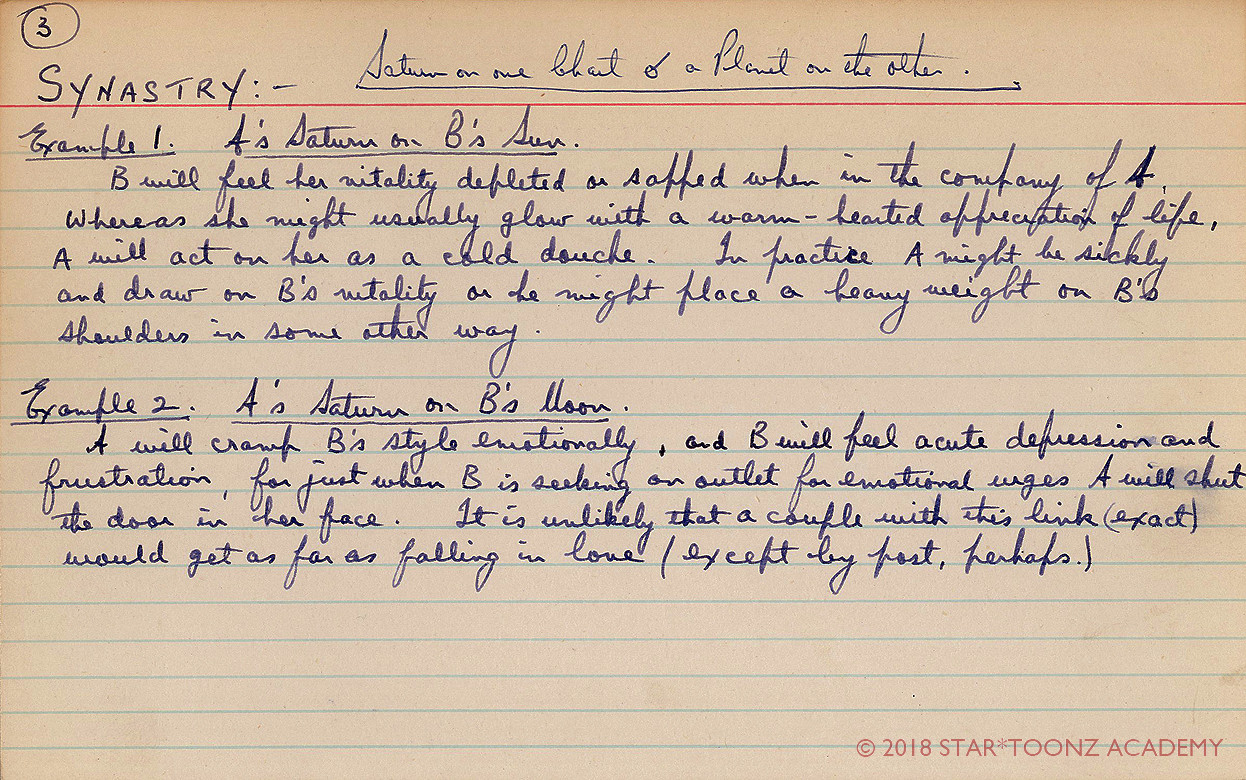 3
SYNASTRY:- Saturn on one Chart ☌ a Planet on the other.
Example 1. A's Saturn on B's Sun.
B will feel her vitality depleted or sapped when in the company of A.
Whereas she might usually glow with a warm-hearted appreciation of life,
A will act on her as a cold douche. In practice A might be sickly
and draw on B's vitality or he might place a heavy weight on B's
shoulders in some other way.
Example 2. A's Saturn on B's Moon.
A will cramp B's style emotionally, and B will feel acute depression and
frustration, for just when B is seeking an outlet for emotional urges A will shut
the door in her face. It is unlikely that a couple with this link (exact)
would get as far as falling in love (except by post, perhaps.)
© 2018 STAR*TOONZ ACADEMY